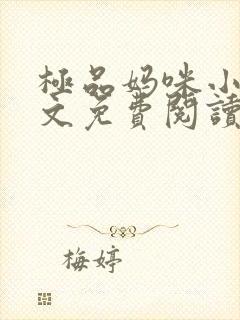 極品妈咪小
文免費閱讀
梅婷